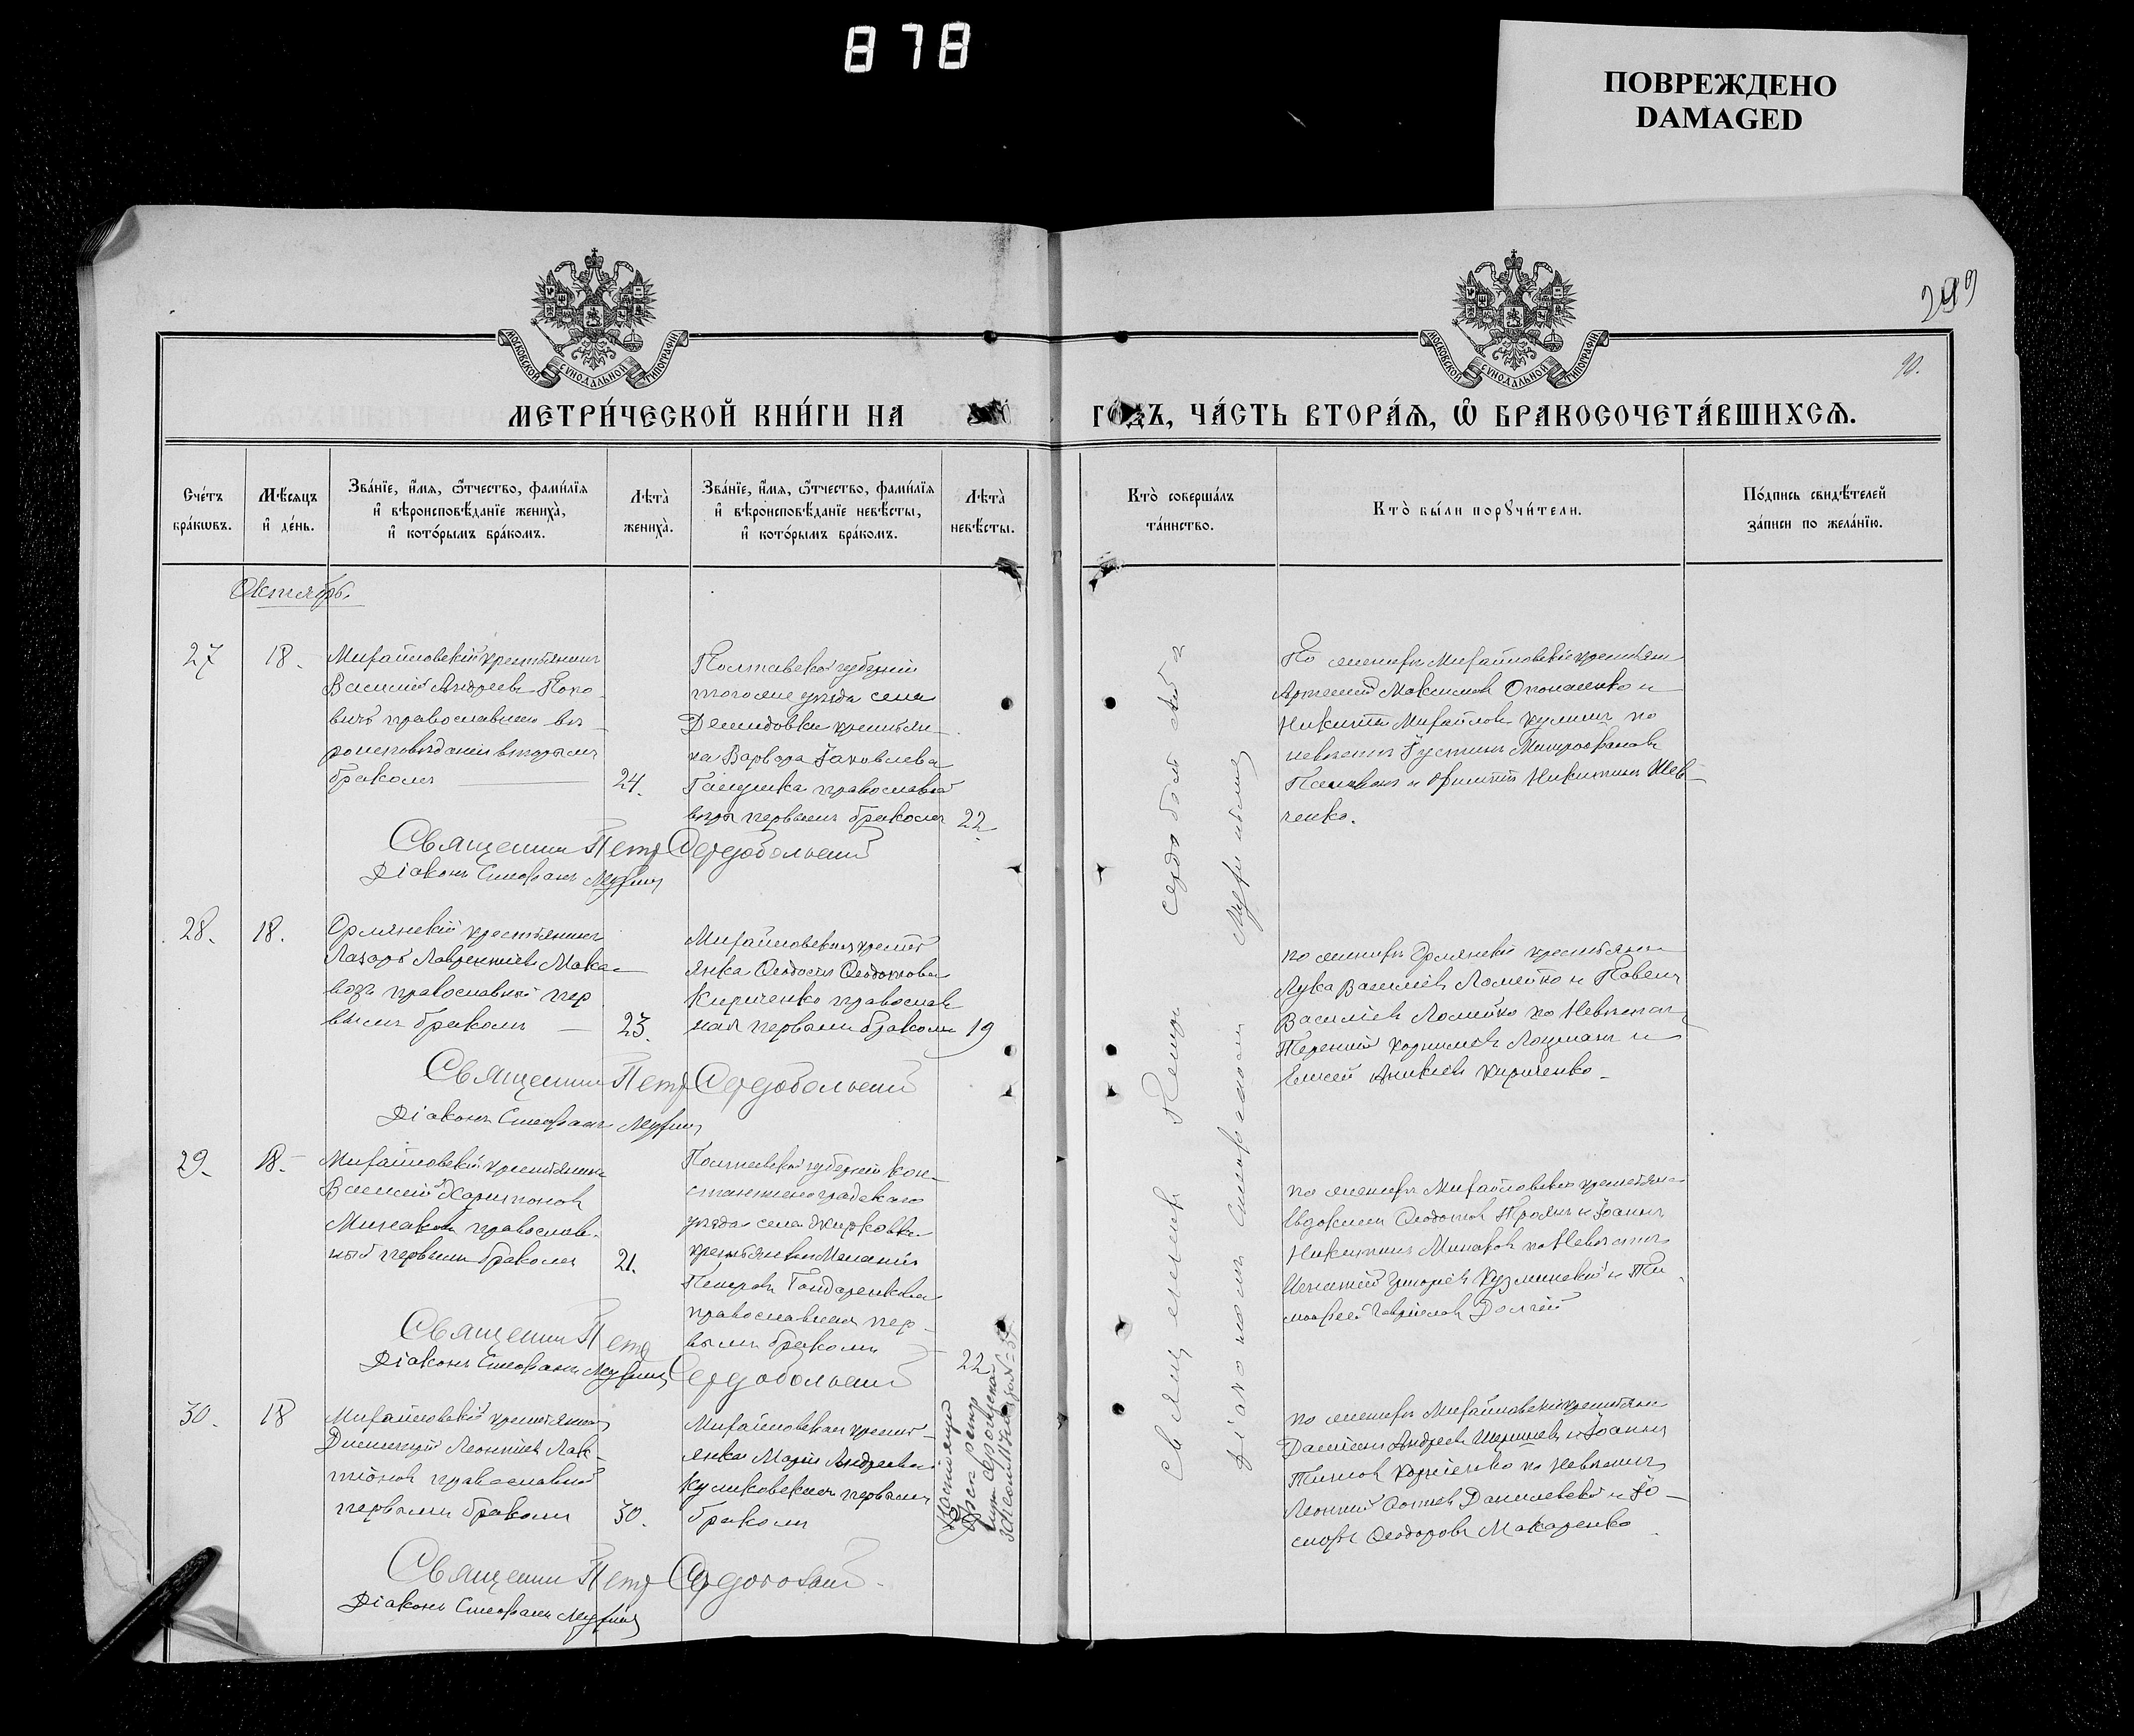 878
ПОВРЕЖДЕНО
DAMAGED
299
90.
МОСКОВСКОЙ СУНОДАЛЬНОЙ ТИПОГРАФІИ
МОСКОВСКОЙ СУНОДАЛЬНОЙ ТИПОГРАФІИ
МЕТРИ́ЧЕСКОЙ КНИ́ГИ НА
ГОДЪ, ЧА́СТЬ ВТОРА́Ѧ, Ѡ БРАКОСОЧЕТА́ВШИХСѦ.
Сче́тъ
бра́кωвъ.
Мѣ́сѧцъ
и҆ де́нь.
Зва́нїе, и҆́мѧ, ѻ҆́тчество, фами́лїѧ
и҆ вѣроисповѣ́данїе жениха̀,
и҆ кото́рымъ бра́комъ.
Лѣта̀
жениха̀.
Зва́нїе, и҆́мѧ, ѻ҆́тчество, фами́лїѧ
и҆ вѣроисповѣ́данїе невѣ́сты,
и҆ кото́рымъ бра́комъ.
Лѣта̀
невѣ́сты.
Кто̀ соверша́лъ
та́инство.
Кто̀ бы́ли порꙋчи́тели.
По́дпись свидѣ́телей
за́писи по жела́нїю.
Октябрь.
27
18.
Михайловскій крестьянинъ
Василій Андреевъ
православнаго вѣ-
роисповѣданія вторымъ
бракомъ
24.
Полтавской губерніи
того же уѣзда села
Демидовки крестьян-
ка Варвара Іаковлева
православной
вѣры первымъ бракомъ
22
По женихѣ Михайловскіе крестьяне
Артемій Максимовъ и
Никита Михайловъ по
невѣстѣ Іустинъ Митрофановъ
и Никитинъ Шев-
ченко.
Священникъ Петръ Сердобольскій
Діаконъ Стефанъ
28.
18.
Орлянскій крестьянинъ
Лазарь Лаврентіевъ Мака-
православный пер
вымъ бракомъ
23.
Михайловская крестъ
янка Ѳеодосія Ѳеодотова
Кириченко православ
ная первымъ бракомъ
19
по женихѣ Орлянскіе крестьяне
Лука Василіевъ Ломейко и Павелъ
Василіевъ Ломейко по Невѣстѣ
Терентій Корниліевъ Лоцманъ и
Елисей Кириченко
Священникъ Петръ Сердобольскій
Діаконъ Стефанъ
29.
18.
Михайловскій крестьянинъ
Василій Харитоновъ
Минаковъ православ-
ный первымъ бракомъ
21.
Полтавской губерніи Кон-
стантиноградскаго
уѣзда села
крестьянка Меланія
Петрова Гондаренкова
православная пер-
вымъ бракомъ
22
по женихѣ Михайловскіе крестьяне
Евдокимъ Ѳеодотовъ Троянъ и Іоаннъ
Никитинъ Минаковъ по Невѣстѣ
Игнатій Григоріевъ Кузминскій и Ти-
моѳей Гавріиловъ Долгій
Священникъ Петръ Сердобольскій
Діаконъ Стефанъ
30.
18
Михайловскій крестьянинъ
Димитрій Леонтіевъ Лак-
тіоновъ православный
первымъ бракомъ
30.
Михайловская крест-
янка Марія Андреева
Куликовская первымъ
бракомъ
по женихѣ Михайловскіе крестьяне
Даміанъ Андреевъ и Іоаннъ
Титовъ Корніенко по Невѣстѣ
Леонтій Данилевскій и Іо-
сифъ Ѳеодоровъ Макаренко
Священникъ Петръ
Діаконъ Стефанъ
Священникъ Петръ
Діакономъ Стефаномъ